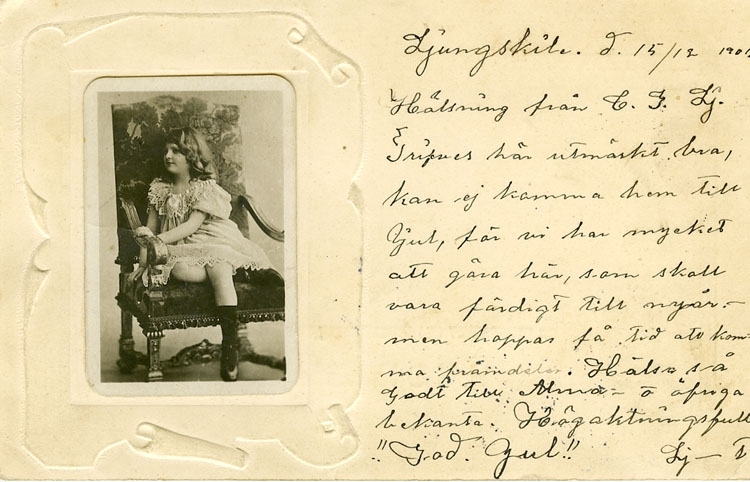 Ljungskile. d. 15/12 190
Hälsning från C. G. Lj.
Trifves här utmärkt bra,
kan ej komma hem till
Jul, för vi har mycket
att göra här, som skall
vara färdigt till nyår –
men hoppas få tid att kom-
ma framdeles. Hälsa så
godt till Alma – o öfriga
bekanta. Högaktningsfull
"God Jul!" Lj –